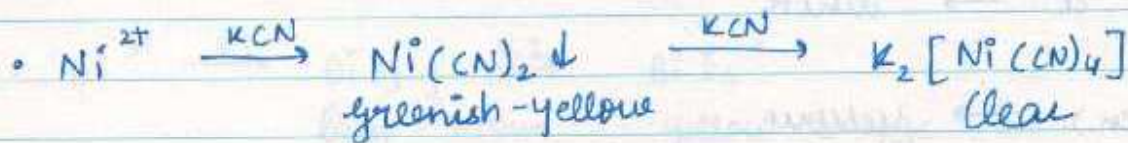 • Ni²⁺ —KCN→ Ni(CN)₂ ↓ —KCN→ K₂[Ni(CN)₄]
greenish-yellow Clear